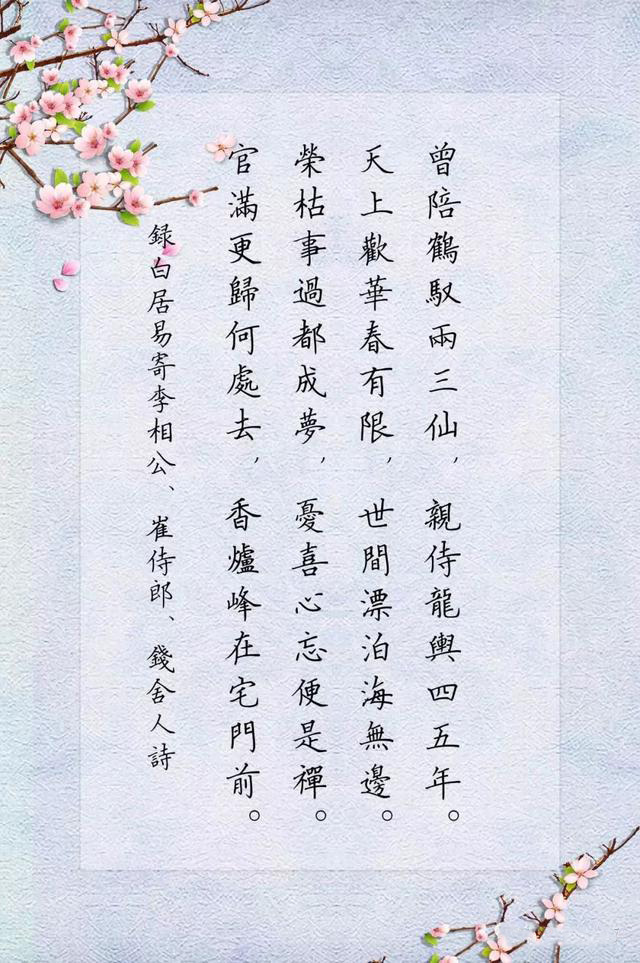 曾陪鶴馭兩三仙，親侍龍輿四五年。
天上歡華春有限，世間漂泊海無邊。
榮枯事過都成夢，憂喜心忘便是禪。
官滿更歸何處去，香爐峰在宅門前。
録白居易寄李相公、崔侍郎、錢舍人詩